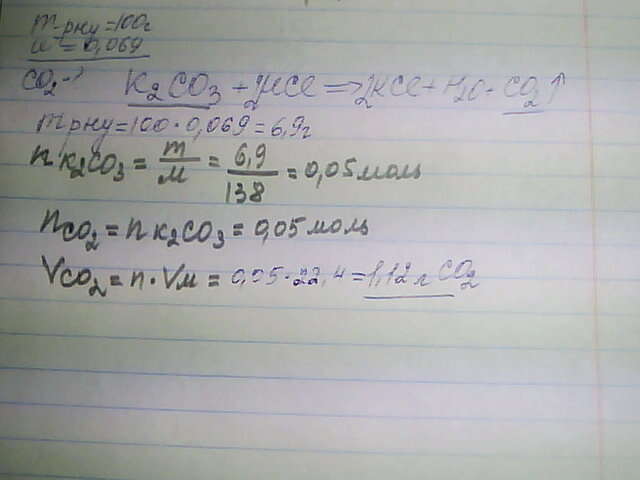 m рну = 100г
w = 0,069
CO2 - ? K2CO3 + 2HCl => 2KCl + H2O + CO2↑
m рну = 100 · 0,069 = 6,9г
n K2CO3 = m/M = 6,9/138 = 0,05 моль
n CO2 = n K2CO3 = 0,05 моль
V CO2 = n · Vм = 0,05 · 22,4 = 1,12 л CO2